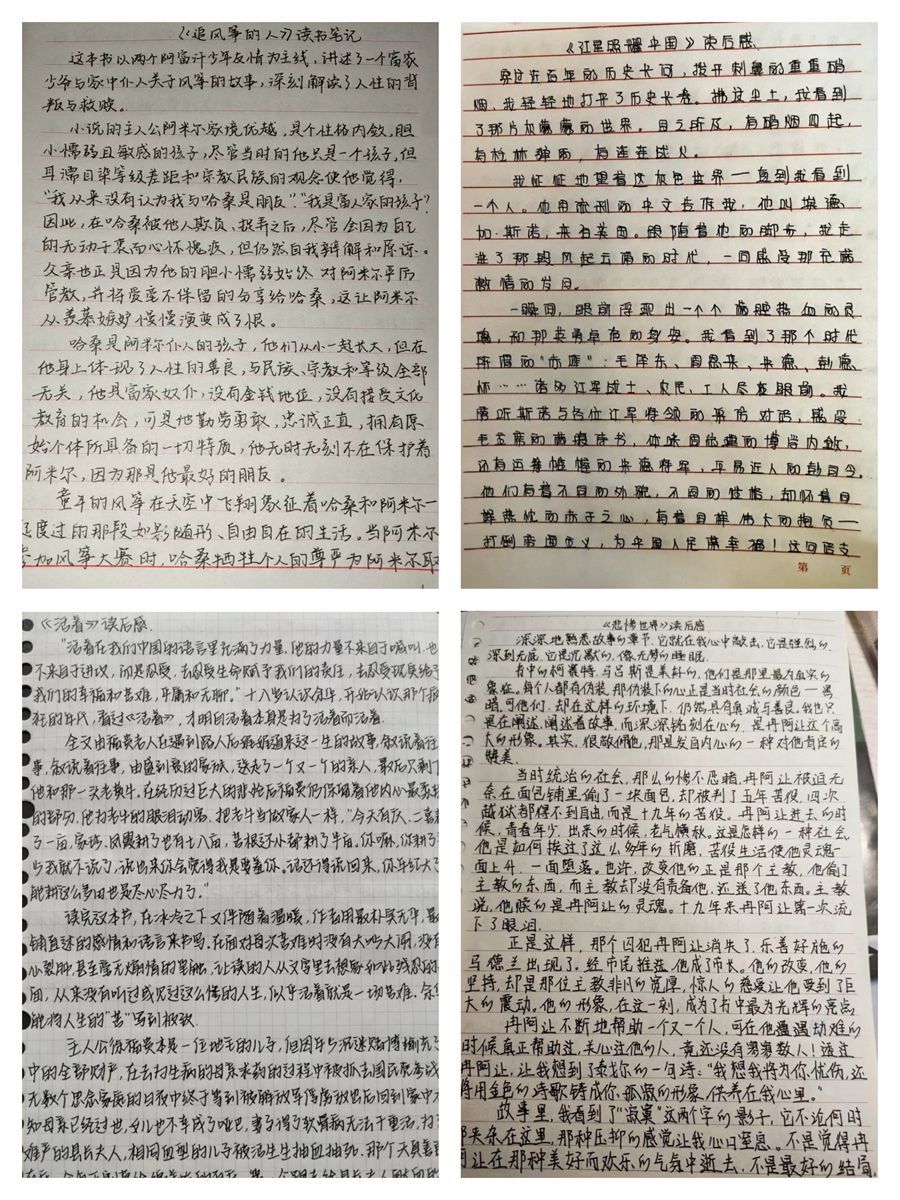 《追风筝的人》读书笔记
这本书以两个阿富汗少年友情为主线，讲述了一个富家
少爷与家中仆人关于风筝的故事，深刻解读了人性的背
叛与救赎。
小说的主人公阿米尔家境优越，是个性格内敛，胆
小懦弱且敏感的孩子，尽管当时的他只是一个孩子，但
耳濡目染等级差距和宗教民族的观念使他觉得，
“我从来没有认为我与哈桑是朋友”“我是富人家的孩子?
因此，在哈桑被他人欺负、捉弄之后，尽管会因为自己
的无动于衷而心怀愧疚，但仍然自我辩解和原谅。
父亲也正是因为他的胆小懦弱始终对阿米尔严厉
管教，并将爱毫不保留的分享给哈桑，这让阿米尔
从羡慕嫉妒慢慢演变成了恨。
哈桑是阿米尔仆人的孩子，他们从小一起长大，但在
他身上体现了人性的善良，与民族、宗教和等级全部
无关，他是富家奴仆，没有金钱地位，没有接受文化
教育的机会，可是他勤劳勇敢，忠诚正直，拥有原
始个体所具备的一切特质，他无时无刻不在保护着
阿米尔，因为那是他最好的朋友。
童年的风筝在天空中飞翔象征着哈桑和阿米尔一
起度过的那段如影随形、自由自在的生活。当阿米尔
参加风筝大赛时，哈桑牺牲个人的尊严为阿米尔取
《红星照耀中国》读后感、
穿过近百年的历史长河，拨开刺鼻的重重硝
烟，我轻轻地打开了历史长卷。拂过尘土，我看到
了那片灰蒙蒙的世界。目之所及，有硝烟四起，
有枪林弹雨，有连连战火。
我怔怔地望着这灰色世界——直到我看到
一个人。他用流利的中文告诉我，他叫埃德
加·斯诺，来自美国。跟随着他的脚步，我走
进了那段风起云涌的时代，一同感受那充满
激情的岁月。
一瞬间，眼前浮现出一个个满腔热血的灵
魂，和那英勇卓危的身姿。我看到了那个时代
所谓的“赤匪”：毛泽东、周恩来、朱德、彭德
怀……诸多红军战士、农民、工人尽在眼前。我
倾听斯诺与各位红军将领的亲切对话，感受
毛主席的满腹诗书，体味周总理的博学内敛，
还有运筹帷幄的朱德将军，平易近人的彭司令。
他们有着不同的外貌，不同的性格，却怀着同
样热忱的赤子之心，有着同样伟大的抱负——
打倒帝国主义，为中国人民谋幸福！这句话支
第 页
《活着》读后感
“活着在我们中国的语言里充满了力量，他的力量不来自于喊叫，也
不来自于进攻，而是忍受，去忍受生命赋予我们的责任，去忍受现实给予
我们的幸福和苦难，平庸和无聊。”十八岁认识余华，开始认识那个疯
狂的年代，看过《活着》，才明白活着本身是为了活着而活着
全文由福贵老人在遇到路人后娓娓道来这一生的故事，叙说着往
事，叙说着往事，由盛到衰的家族，送走了一个又一个的亲人，最后只剩了
他和那一头老黄牛。在经历过巨大的悲恸后福贵仍保留着他内心最柔软
的部分，他为老牛的眼泪动容，把老牛当做家人一样。“今天有庆、二喜耕
了一亩，家珍、凤霞耕了也有七八亩，苦根还小都耕了半亩。你嘛，你耕了多
少我就不说了，说出来你会觉得我是要羞你。话还得说回来，你年纪大了
能耕这么多田也是尽心尽力了。”
读完这本书，在冰冷之下又伴随着温暖，作者用最朴实无华，最
铺直述的感情和语言来书写。在面对每次苦难时没有大吵大闹，没有
心裂肺，甚至毫无煽情的笔触，让读的人从文字里去想象和比残忍的
面，从来没有听过或见过这么惨的人生，似乎活着就是一切苦难。余华
能将人生的“苦”写到极致.
主人公徐福贵本是一位地主的儿子，但因年少沉迷赌博输光了
中的全部财产，在去为生病的母亲求药的过程中被抓去国民党当战
无数个思念家庭的日夜中终于等到被解放
《悲惨世界》读后感
深深地熟悉故事的章节，它就在我心中敲击，它是强烈的
深到无底，它是沉默的，像无梦的睡眠。
书中的柯赛特，马吕斯是美好的，他们是那里最为真实的
象征。每个人都有伪装，那伪装下的心正是当时社会的颜色——黑
暗，可他们，却在这样的环境下，仍然具有真诚与善良。我也只
是在阐述，阐述着故事，而深深铭刻在心的，是冉阿让这个高
大的形象。其实，很敬佩他，那是发自内心的一种对他肯定的
赞美。
当时统治的社会，那么的惨不忍睹，冉阿让被迫无
奈在面包铺里偷了一块面包，却被判了五年苦役，四次
越狱都得不到自由，而是十九年的苦役。冉阿让进去的时
候，青春年少，出来的时候，老气横秋。这是怎样的一种社会
他是如何挨过了这么多年的折磨，苦役生活使他灵魂一
面上升，一面堕落。也许，改变他的正是那个主教，他偷了
主教的东西，而主教却没有责备他，还送了他东西。主教
说，他赎的是冉阿让的灵魂。十九年来冉阿让第一次流
下了眼泪.
正是这样，那个囚犯冉阿让消失了，乐善好施的
马德兰出现了，经市民推选，他成了市长。他的改变，他的
坚持，却是那位主教非凡的宽厚，惊人的慈爱让他受到了巨
大的震动。他的形象，在这一刻，成为了书中最为光辉的亮点
冉阿让不断地帮助一个又一个人，可在他遭遇劫难的
时候，真正帮助过，关心过他的人，竟还没有寥寥数人！透过
冉阿让，让我想到了泰戈尔的一句诗：“我想我将为你忧伤，还
将用金色的诗歌铸成你，孤寂的形象，供养在我心里。”
故事里，我看到了“寂寞”这两个字的影子，它不论何时
都夹杂在这里，那种压抑的感觉让我心口窒息。不是觉得冉
阿让在那种美好而欢乐的气氛中逝去，不是最好的结局.